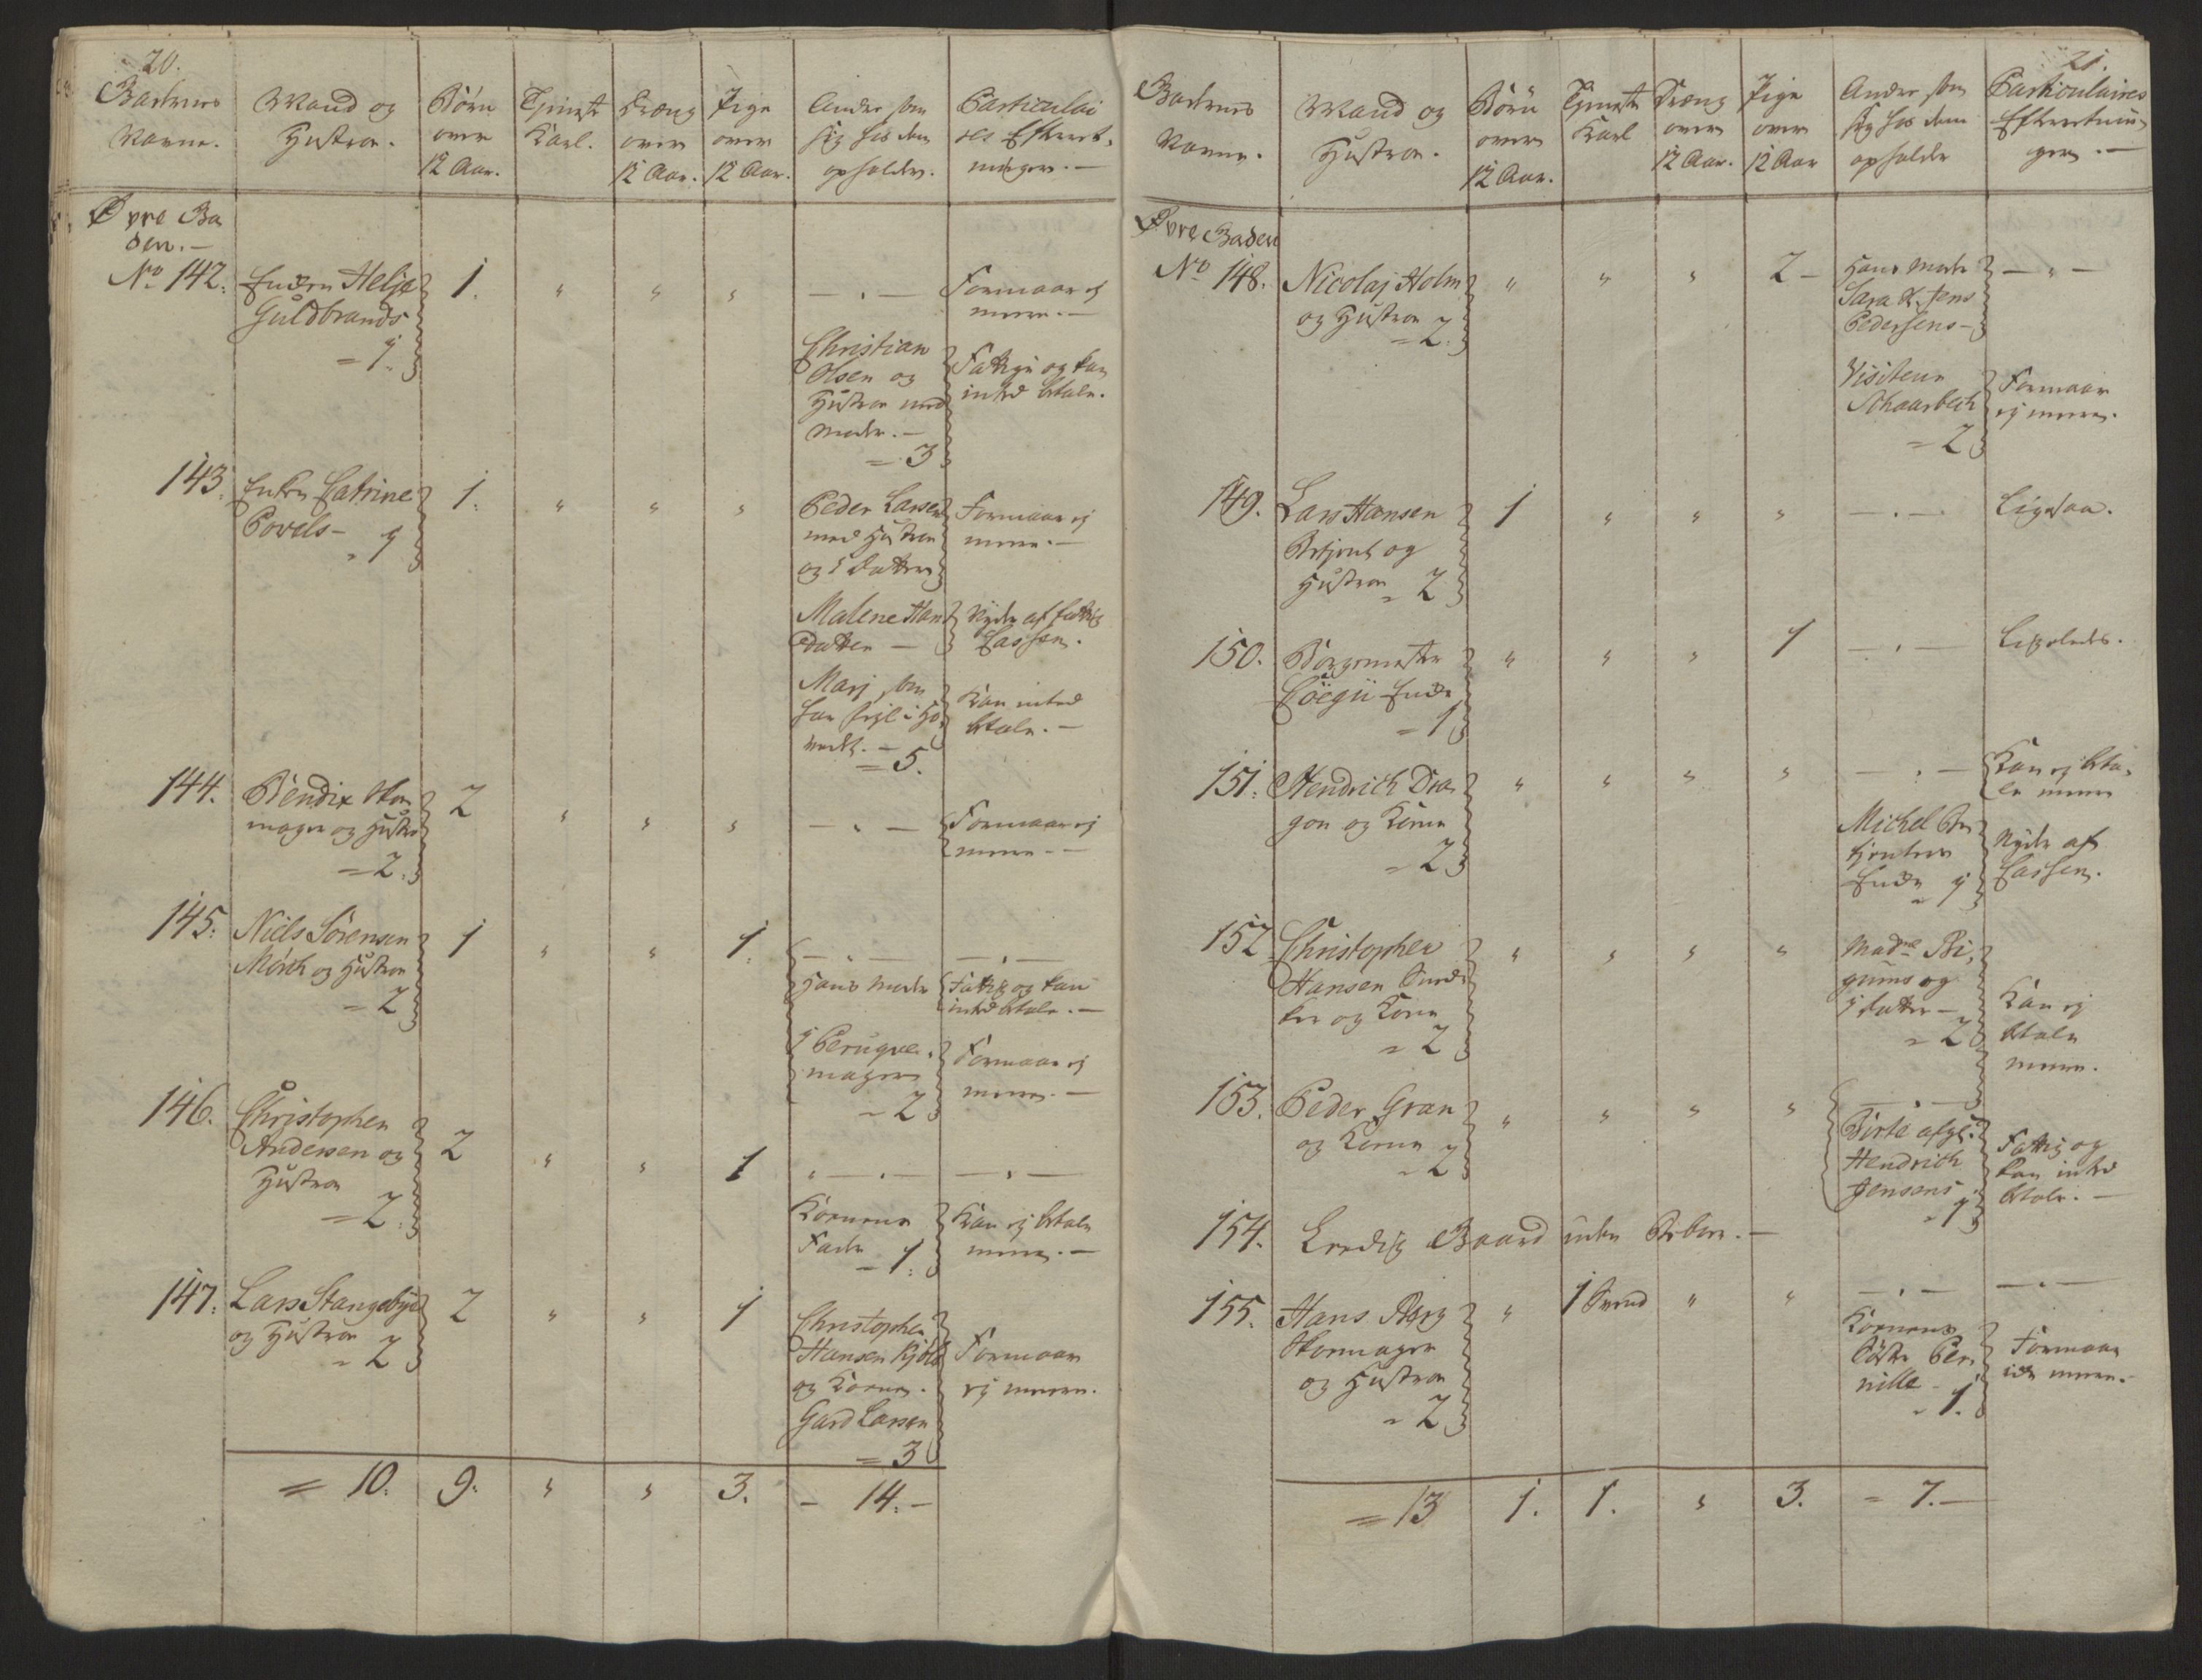 20.
Gadernes
Navne.
Mand og
Hustroe.
Børn
over
12 Aar.
Tjeneste
Karl.
Dræng
over
12 Aar.
Pige
over
12 Aar.
Andre som
sig hos dem
opholder.
Particulai
res Efterret,
ninger. —
Øvre Ga
den. —
No 142.
Enken Helje
Guldbrands
= 1.
1.
"
"
"
— " —
Formaar ej
meere. —
Christian
Olsen og
Hustroe med
Moder. —
= 3
Fattige og kan
intet betale.
143.
Enken Catrine
Povels —
" 1
1.
"
"
"
Peder Larsen
med Hustroe
og 1 Datter
Formaar ej
meere. —
Malene Hans
Datter —
Nyder af Fattig
Cassen.
Marj, som
= 5.
Kan intet
betale. —
144.
Bendix Skoe
mager og Hustro
= 2.
2
"
"
"
— " —
Formaar ej
meere —
145.
Niels Sörensen
Mörch og Hustroe
= 2
1
"
"
1.
— " —
— " —
Hans Moder
Fattig og kan
intet betale. —
1 Peruqve,
mager
= 2
Formaar ej
meere. —
146.
Christopher
Andersen og
Hustroe
= 2.
2
"
"
1
" — " —
— " —
Konens
Fader
= 1.
Kan ej betale
meere. —
147.
Lars Stangebye
og Hustroe
= 2
2
"
"
1
Christopher
Hansen Kjöls
og Konen.
Gurd Larsen
= 3
Formaar
ej meere.
= 10.
9.
"
"
3.
— 14. —
21.
Gadernes
Navne.
Mand og
Hustroe.
Børn
over
12 Aar.
Tjeneste
Karl
Dræng
over
12 Aar.
Pige
over
12 Aar
Andre som
sig hos dem
opholder
Particulaires
Efterretnin,
ger. —
Øvre Gaden
No 148.
Nicolaj Holm
og Hustroe
= 2.
"
"
"
2 —
Hans Moder
Sara Jens
Pedersens —
— " —
Visiteur
Schaarbech
= 2
Formaar
ej meere.
149.
Lars Hansen
Betjent og
Hustroe " 2
1
"
"
"
— " —
Ligesaa.
150.
Borgemester
Cöegii Enke
= 1
"
"
"
1
— " —
Ligeledes.
151.
Hendrich Dra,
gon og Kone
= 2
"
"
"
"
— " —
Kan ej beta,
le meere
Michel Be,
tjentes
Enke 1
Nyder af
Cassen.
152
Christopher
Hansen Sned,
ker og Kone
= 2
"
"
"
"
Madme
og
1 Datter —
= 2
Kan ej
betale
meere.
153.
Peder Gran
og Kone
= 2
"
"
"
"
— " —
Birte afgl.
Hendrich
Jensens
" 1
Fattig og
kan intet
betale. —
154.
Leedig Gaard uden Beboer. —
155.
Hans Berg
Skoemager
og Hustroe
= 2
"
1 Svend
"
"
— " —
— " —
Konens
Söster Per,
nille —
" 1.
Formaar
ike meere.
= 13
1.
1.
"
3.
= 7. —